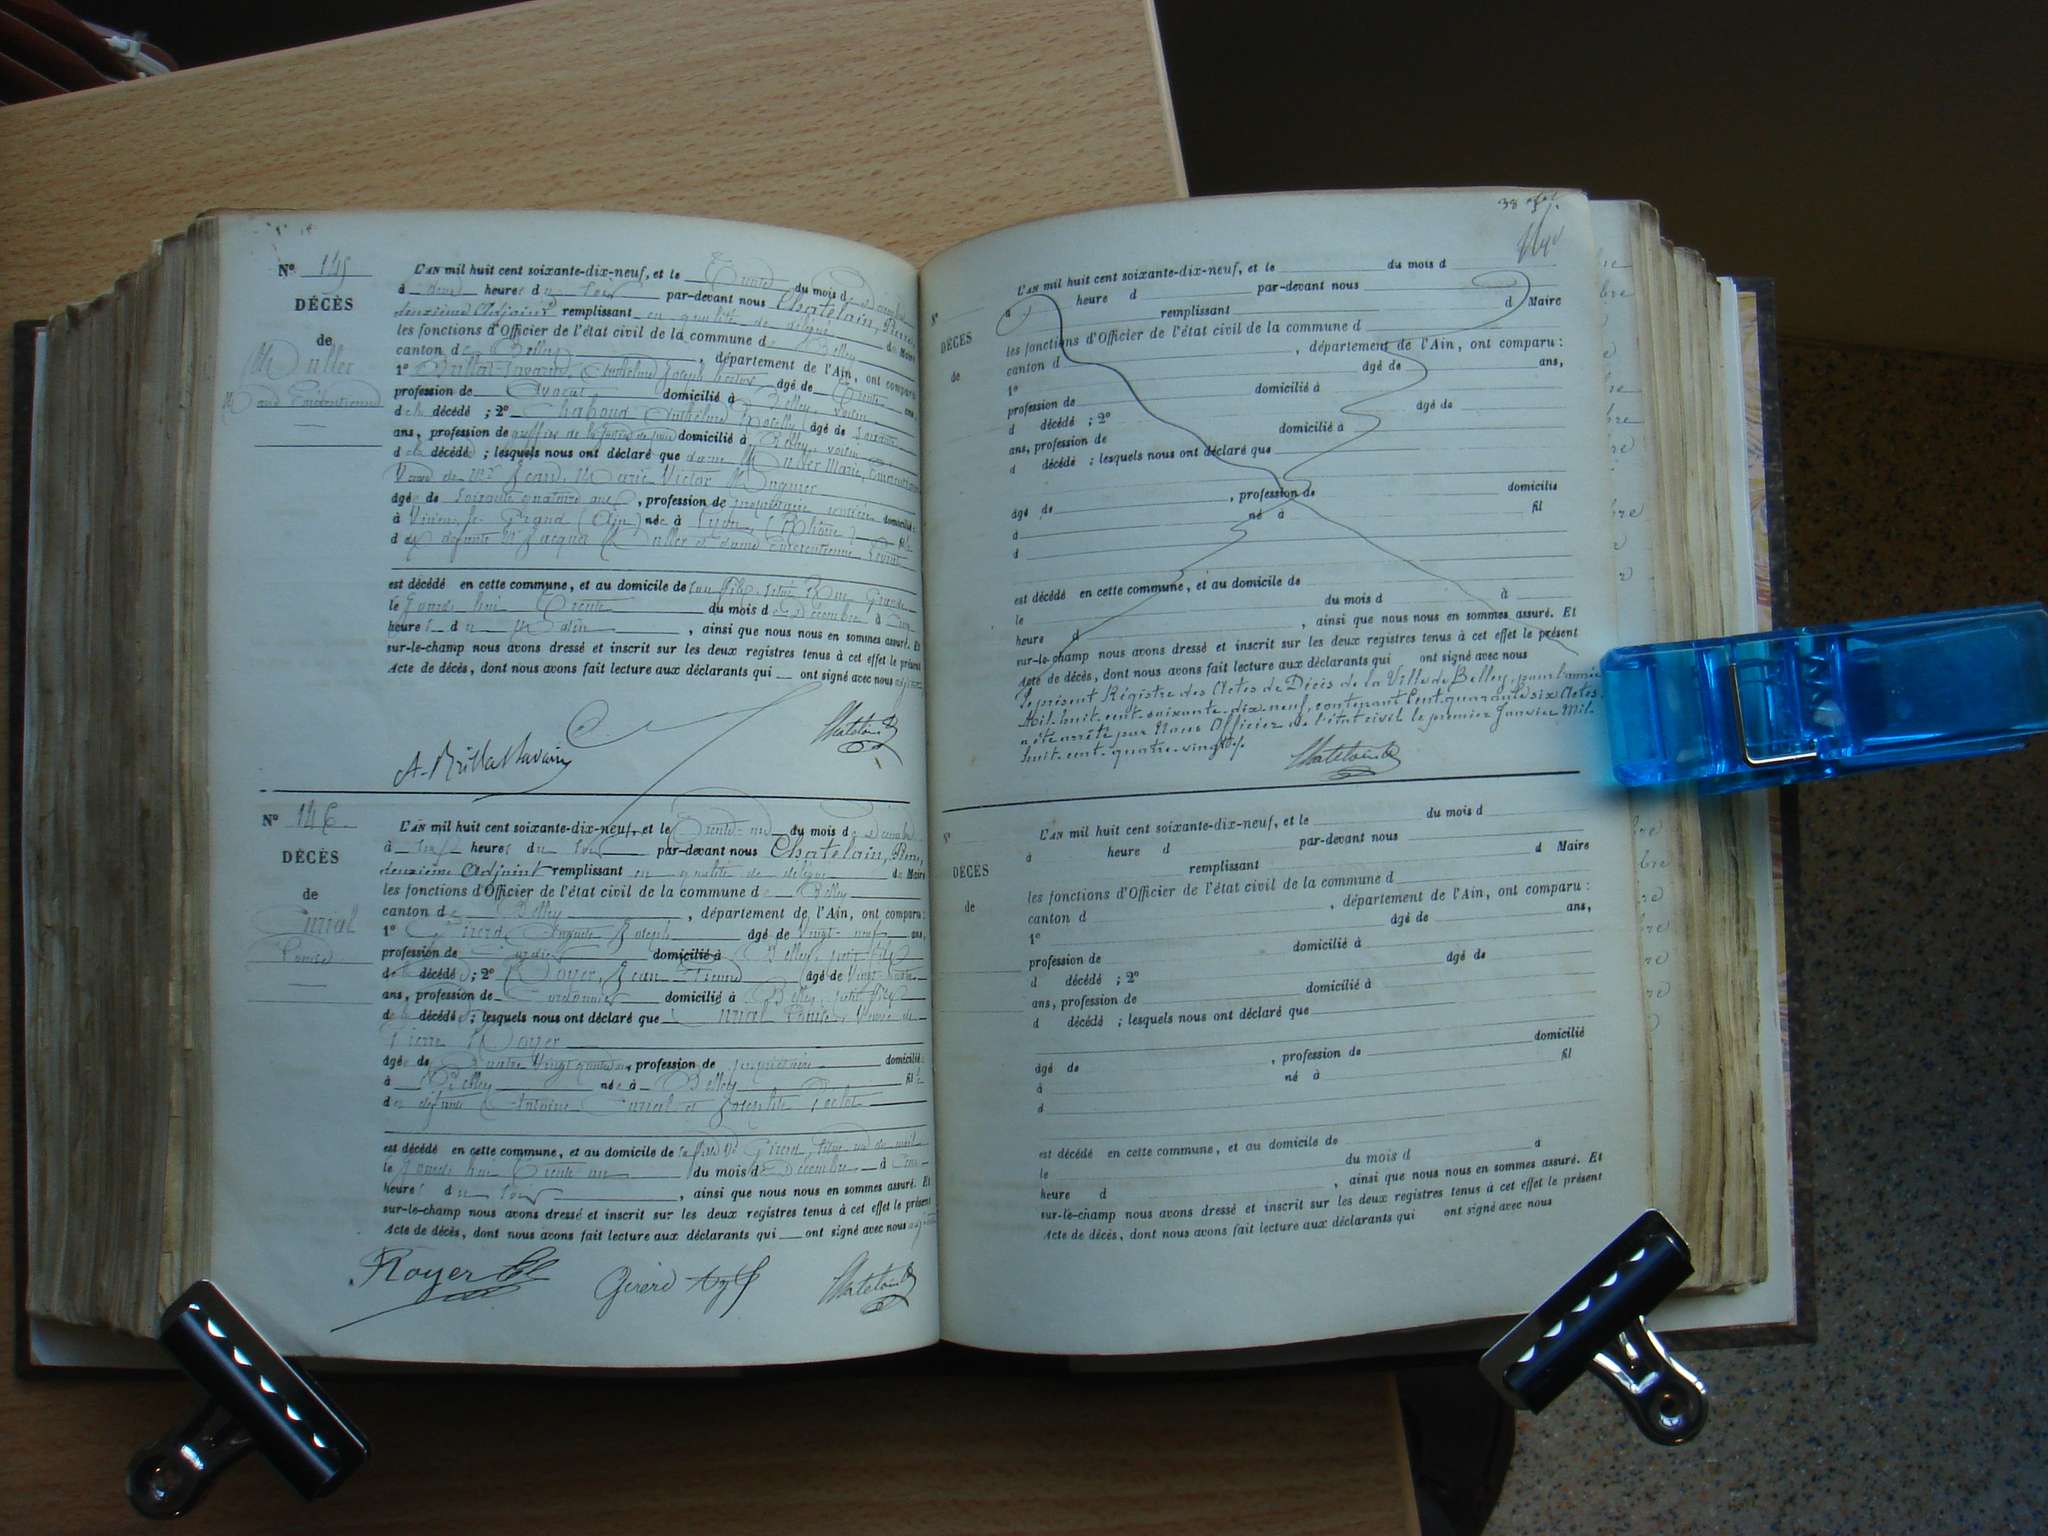 Nº 145
DÉCÈS
de
Muller
L'AN mil huit cent soixante-dix-neuf, et le Trente du mois d
à heures du soir par-devant nous Chatelain, Pierre
deuxième Adjoint remplissant en qualité de délégué de Maire
les fonctions d'Officier de l'état civil de la commune de Belley
canton de Belley, département de l'Ain, ont comparu
1º Brillat-Savarin, Anthelme Joseph âgé de Trente ans,
profession de Avocat domicilié à Belley, voisin
de la décédée; 2º Chaboud Anthelme âgé de
ans, profession de greffier de la Justice de paix domicilié à Belley, voisin
de la décédée; lesquels nous ont déclaré que dame Muller Marie,
Veuve de Mr Jean Marie Victor Mugnier
âgée de soixante quatorze ans, profession de propriétaire rentière domiciliée
à Virieu-le-Grand (Ain) née à Lyon (Rhône) fille
des défunts Mr Jacques Muller et dame
est décédée en cette commune, et au domicile de son fils, situé Rue Grande
le Jourd'hui Trente du mois de Décembre à
heures du Matin, ainsi que nous nous en sommes assuré. Et
sur-le-champ nous avons dressé et inscrit sur les deux registres tenus à cet effet le présent
Acte de décès, dont nous avons fait lecture aux déclarants qui ont signé avec nous
A. Brillat Savarin
Chatelain
Nº 146
DÉCÈS
de
Louise
L'AN mil huit cent soixante-dix-neuf, et le Trente-un du mois de Décembre
à heures du soir par-devant nous Chatelain, Pierre,
deuxième Adjoint remplissant en qualité de délégué de Maire
les fonctions d'Officier de l'état civil de la commune de Belley
canton de Belley, département de l'Ain, ont comparu:
1º Girerd Auguste Joseph âgé de Vingt-neuf ans,
profession de domicilié à Belley, petit fils
de la décédée; 2º Royer, Jean Pierre âgé de Vingt
ans, profession de Cordonnier domicilié à Belley, petit fils
de la décédée; lesquels nous ont déclaré que Louise, Veuve de
Pierre Royer
âgée de Quatre Vingt quatre ans, profession de propriétaire domiciliée
à Belley née à Belley fille
des défunts Antoine et Josephte
est décédée en cette commune, et au domicile de Girerd,
le Jourd'hui Trente un du mois de Décembre à
heures du soir, ainsi que nous nous en sommes assuré. Et
sur-le-champ nous avons dressé et inscrit sur les deux registres tenus à cet effet le présent
Acte de décès, dont nous avons fait lecture aux déclarants qui ont signé avec nous
Royer
Girerd
Chatelain
38
Nº
DÉCÈS
de
L'AN mil huit cent soixante-dix-neuf, et le du mois d
à heure d par-devant nous
remplissant d Maire
les fonctions d'Officier de l'état civil de la commune d
canton d, département de l'Ain, ont comparu:
1º âgé de ans,
profession de domicilié à
d décédé; 2º âgé de
ans, profession de domicilié à
d décédé; lesquels nous ont déclaré que
âgé de, profession de domicilié
à né à fil
d
est décédé en cette commune, et au domicile de
le du mois d à
heure d, ainsi que nous nous en sommes assuré. Et
sur-le-champ nous avons dressé et inscrit sur les deux registres tenus à cet effet le présent
Acte de décès, dont nous avons fait lecture aux déclarants qui ont signé avec nous
Le présent Régistre des Actes de Décès de la Ville de Belley, pour l'année
Mil-huit-cent-soixante-dix-neuf, contenant Cent-quarante-six Actes.
a été arrêté par Nous Officier de l'état civil le premier Janvier Mil-
huit-cent-quatre-vingts.
Chatelain
Nº
DÉCÈS
de
L'AN mil huit cent soixante-dix-neuf, et le du mois d
à heure d par-devant nous
remplissant d Maire
les fonctions d'Officier de l'état civil de la commune d
canton d, département de l'Ain, ont comparu:
1º âgé de ans,
profession de domicilié à
d décédé; 2º âgé de
ans, profession de domicilié à
d décédé; lesquels nous ont déclaré que
âgé de, profession de domicilié
à né à fil
d
est décédé en cette commune, et au domicile de
le du mois d à
heure d, ainsi que nous nous en sommes assuré. Et
sur-le-champ nous avons dressé et inscrit sur les deux registres tenus à cet effet le présent
Acte de décès, dont nous avons fait lecture aux déclarants qui ont signé avec nous